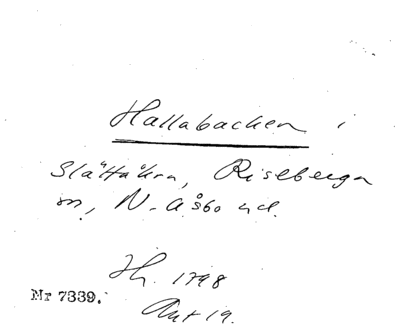 Hallabacken i
Slättåkra, Riseberga
sn, N. Åsbo hd.
Jh. 1798
Akt 19.
Mr 7339.